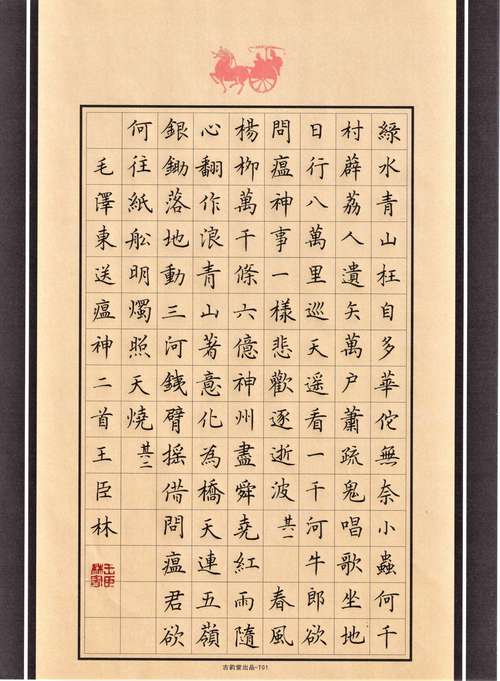 綠水青山枉自多華佗無奈小蟲何千
村薜荔人遺矢萬户蕭疏鬼唱歌坐地
日行八萬里巡天遥看一千河牛郎欲
問瘟神事一樣悲歡逐逝波 其一 春風
楊柳萬千條六億神州盡舜堯紅雨隨
心翻作浪青山著意化為橋天連五嶺
銀鋤落地動三河銕臂摇借問瘟君欲
何往紙舩明燭照天燒 其二
毛澤東送瘟神二首王臣林
古韵堂出品-T01